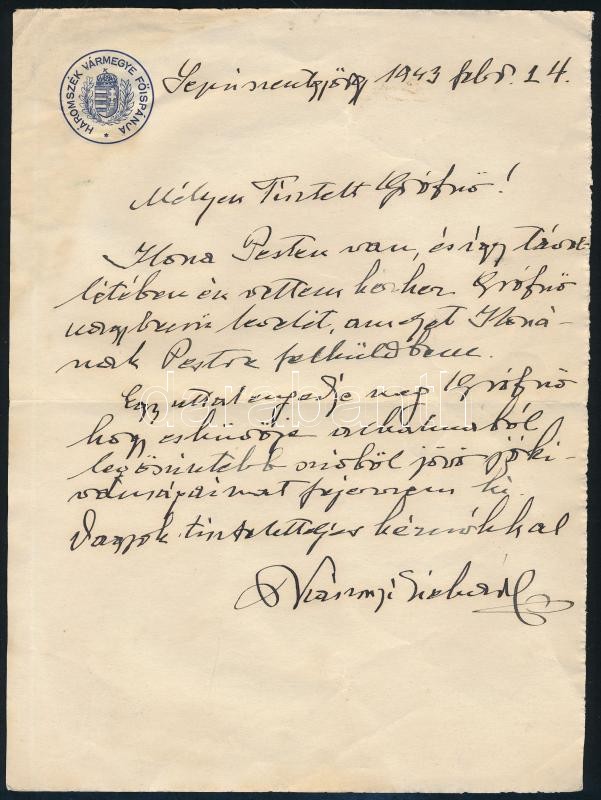 HÁROMSZÉK VÁRMEGYE FŐISPÁNJA
Sepsiszentgyörgy 1943 febr. 14.
Mélyen Tisztelt Grófnő!
Ilona Pesten van, és így távol-
létében én vettem kézhez Grófnő
nagybecsű levelét, amelyet Iloná-
nak Pestre felküldtem.
Egyuttal engedje meg Grófnő
hogy esküvője alkalmából
legőszintébb szívből jövő jóki-
vánságaimat fejezzem ki.
Vagyok tiszteletteljes kézcsókkal
darabanth